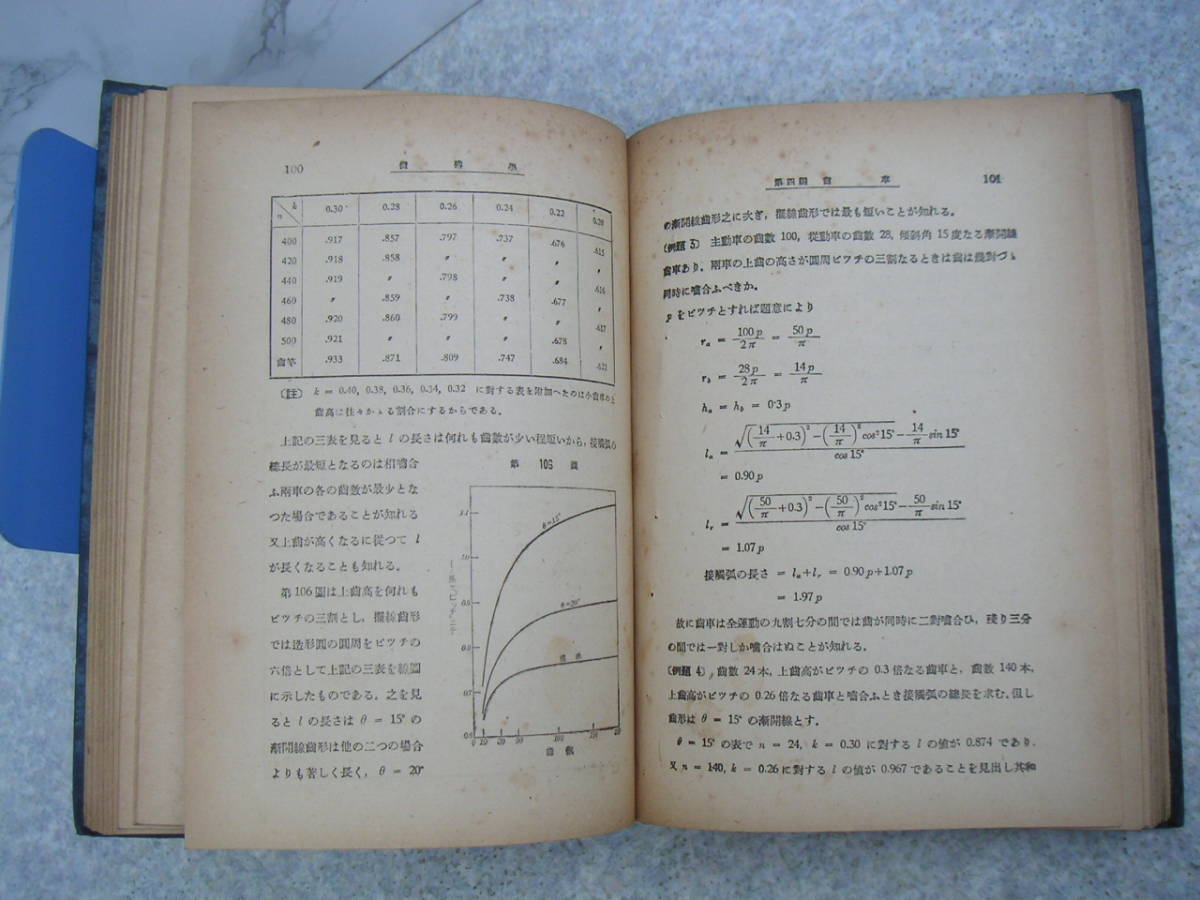 100 機構學
n k 0.30 0.28 0.26 0.24 0.22 0.20
400 .917 .857 .797 .737 .676 .615
420 .918 .858 〃 〃 〃 〃
440 .919 〃 .798 〃 〃 .616
460 〃 .859 〃 .738 .677 〃
480 .920 .860 .799 〃 〃 .617
500 .921 〃 〃 〃 .678 〃
齒竿 .933 .871 .809 .747 .684 .621
〔註〕 k = 0.40, 0.38, 0.36, 0.34, 0.32 に對する表を附加へたのは小齒車の上
齒高は往々かゝる割合にするからである。
上記の三表を見ると l の長さは何れも齒數が少い程短いから，接觸弧の
總長が最短となるのは相嚙合
ふ兩車の各の齒數が最少とな
つた場合であることが知れる
又上齒が高くなるに從つて l
が長くなることも知れる。
第106圖は上齒高を何れも
ピツチの三割とし，擺線齒形
では造形圓の圓周をピツチの
六倍として上記の三表を線圖
に示したものである。之を見
ると l の長さは θ = 15° の
漸開線齒形は他の二つの場合
よりも著しく長く， θ = 20°
第 106 圖
1.1
1.0
0.9
0.8
0.7
0.6
θ=15°
θ=20°
擺線
0 10
齒數
第四編 齒車 101
の漸開線齒形之に次ぎ，擺線齒形では最も短いことが知れる。
〔例題 3〕 主動車の齒數 100, 從動車の齒數 28, 傾斜角 15 度なる漸開線
齒車あり，兩車の上齒の高さが圓周ピツチの三割なるときは齒は幾對づゝ
同時に嚙合ふべきか。
p をピツチとすれば題意により
rₐ = 100p/2π = 50p/π
r_b = 28p/2π = 14p/π
hₐ = h_b = 0.3p
lₐ = √((14/π+0.3)²−(14/π)²cos²15°−14/π sin 15° / cos 15°
= 0.90 p
l_r = √((50/π+0.3)²−(50/π)²cos²15°−50/π sin 15° / cos 15°
= 1.07 p
接觸弧の長さ = lₐ+l_r = 0.90 p+1.07 p
= 1.97 p
故に齒車は全運動の九割七分の間では齒が同時に二對嚙合ひ，殘り三分
の間では一對しか嚙合はぬことが知れる。
〔例題 4〕，齒數 24本，上齒高がピツチの 0.3 倍なる齒車と，齒數 140本，
上齒高がピツチの 0.26 倍なる齒車と嚙合ふとき接觸弧の總長を求む，但し
齒形は θ = 15° の漸開線とす。
θ = 15° の表で n = 24, k = 0.30 に對する l の値が 0.874 であり，
又 n = 140, k = 0.26 に對する l の値が 0.967 であることを見出し其和